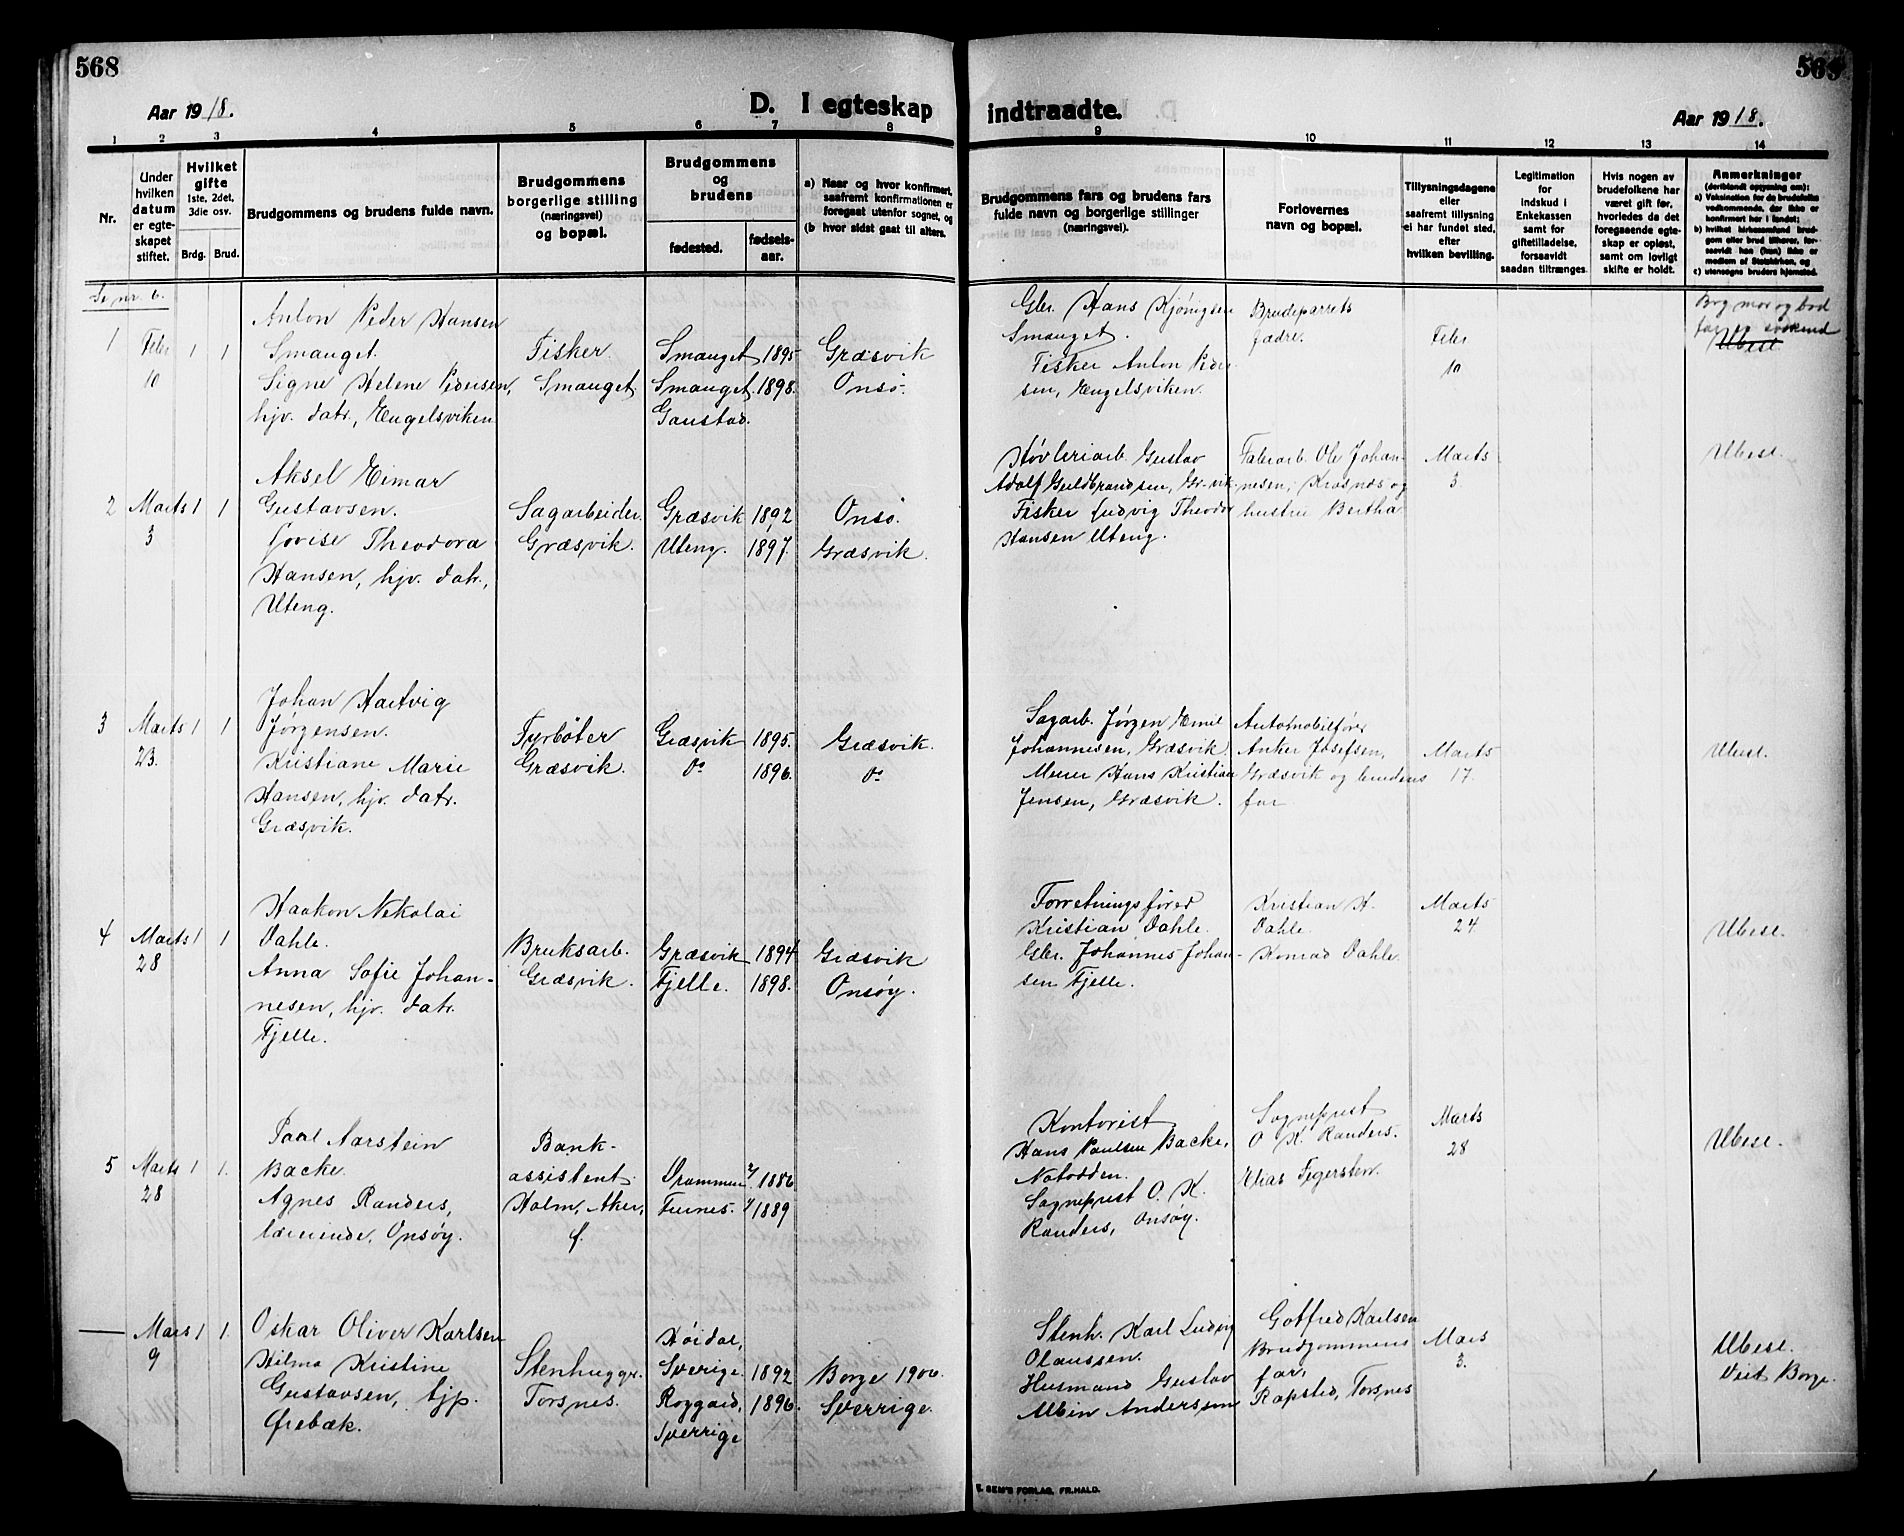 568
568
Aar 1918.
D. I egteskap
indtraadte.
Aar 1918.
1 2 3 4 5 6 7 8 9 10 11 12 13 14
Nr.
Under hvilken datum er egteskapet stiftet.
Hvilket gifte 1ste, 2det, 3die osv.
Brdg. Brud.
Brudgommens og brudens fulde navn.
Brudgommens borgerlige stilling (næringsvei) og bopæl.
Brudgommens og brudens
fødested. fødselsaar.
a) Naar og hvor konfirmert, saafremt konfirmationen er foregaat utenfor sognet, og
(b hvor sidst gaat til alters.
Brudgommens fars og brudens fars fulde navn og borgerlige stillinger (næringsvei).
Forlovernes navn og bopæl.
Tillysningsdagene eller saafremt tillysning ei har fundet sted, efter hvilken bevilling.
Legitimation for indskud i Enkekassen samt for giftetilladelse, forsaavidt saadan tiltrænges.
Hvis nogen av brudefolkene har været gift før, hvorledes da det foregaaende egteskap er opløst, samt om lovligt skifte er holdt.
Anmerkninger
(deriblandt opgysning om):
a) Vaksination for de brudefolks vedkommende, der ikke er konfirmert her i landet;
b) hvilket kirkesamfund brudgom eller brud tilhører, forsaavidt han (hun) ikke er medlem af Statskirken, og
c) utensogns bruders hjemsted.
Se nr. 6.
1
Febr
10
1 1
Anton Peder Hansen
Smauget.
Signe Helene Pedersen,
hjv. datr., Engelsviken
Fisker.
Smauget.
Smauget 1895
Smauget 1898.
Gaustad.
Græsvik
Onsø.
Gbr. Hans Kjønigsen
Smauget.
Fisker Anton Peder
sen, Engelsviken.
Brudeparrets
fædre.
Febr
10
Brg mor og brd
far er søskend
Ubesl.
2
Marts
3
1 1
Aksel Eimar
Gustavsen.
Lovise Theodora
Hansen, hjv. datr.,
Uteng.
Sagarbeider.
Græsvik.
Græsvik 1892
Uteng. 1897.
Onsø.
Græsvik.
Høvleriarb. Gustav
Adolf Guldbrandsen, Gr-vik
Fisker Ludvig Theodor
Hansen Uteng.
Fabrarb. Ole Johan-
nesen, Krosnæs og
hustru Bertha
Marts
3
Ubesl.
3
Marts
23.
1 1
Johan Hartvig
Jørgensen.
Kristiane Marie
Hansen, hjv. datr.
Græsvik.
Fyrbøter
Græsvik.
Græsvik 1895.
Do 1896.
Græsvik.
Do
Sagarb. Jørgen Emil
Johannesen, Græsvik
Murer Hans Kristian
Jensen, Græsvik.
Automobilfører
Anker Josefsen,
Græsvik og brudens
far
Marts
17.
Ubesl.
4
Marts
28
1 1
Haakon Nikolai
Dahle.
Anna Sofie Johan-
nesen, hjv. datr.
Fjelle.
Bruksarb.
Græsvik.
Græsvik 1894
Fjelle. 1898.
Græsvik
Onsøy.
Forretningsfører
Kristian Dahle.
Gbr. Johannes Johan-
sen Fjelle.
Kristian H.
Dahle.
Konrad Dahle.
Marts
24
Ubesl.
5
Marts
28
1 1.
Paal Aarstein
Backe.
Agnes Randers,
lærerinde, Onsøy.
Bank-
assistent.
Holm, Aker,
Drammen 1886
Furnes. 1889
Kontorist
Hans Paulsen Backe,
Notodden.
Sogneprest O. K.
Randers, Onsøy.
Sogneprest
O K. Randers.
Elias Fegersten.
Marts
28
Ubesl.
—
Mars
9
1 1.
Oskar Oliver Karlsen
Hilma Kristine
Gustavsen, tjp.
Ørebæk.
Stenhuggr.
Torsnes.
Høidal,
Sverige. 1892
Roggard, 1896.
Sverrige
Borge 1906.
Sverrige.
Stenh. Karl Ludvig
Olaussen.
Husmand Gustav
Albin Anderssen
Gotfred Karlsen
Brudgommens
far,
Rapstad, Torsnes
Mars
3.
Ubesl.
Viet Borge.
E. SEM'S FORLAG, FR.HALD.